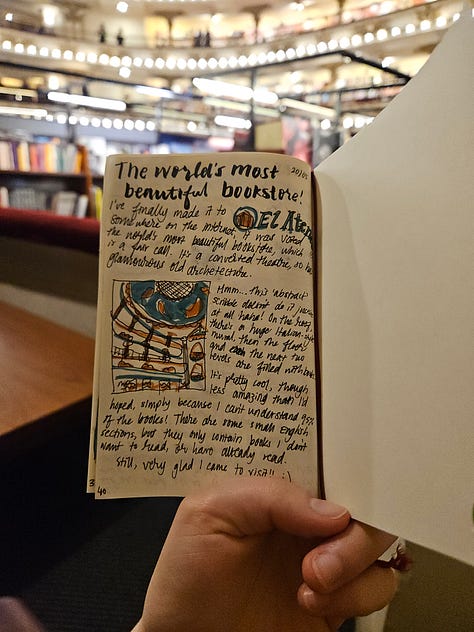 The world's most 20/03
beautiful bookstore!
I've finally made it to El Ate
Somewhere on the internet, it was voted
the world's most beautiful bookstore, which
is a fair call. It's a converted theatre, so
glamourous old archetecture.
Hmm... this 'abstract'
scribble doesn't do it
at all haha! On the
there's a huge Italian
mural, then the floor
and the next two
levels are filled with
It's pretty cool, though
less amazing than I'd
hoped, simply because I can't understand 95%
of the books! There are some small English
sections, but they only contain books I don't
want to read, or have already read.
Still, very glad I came to visit!! :)
40